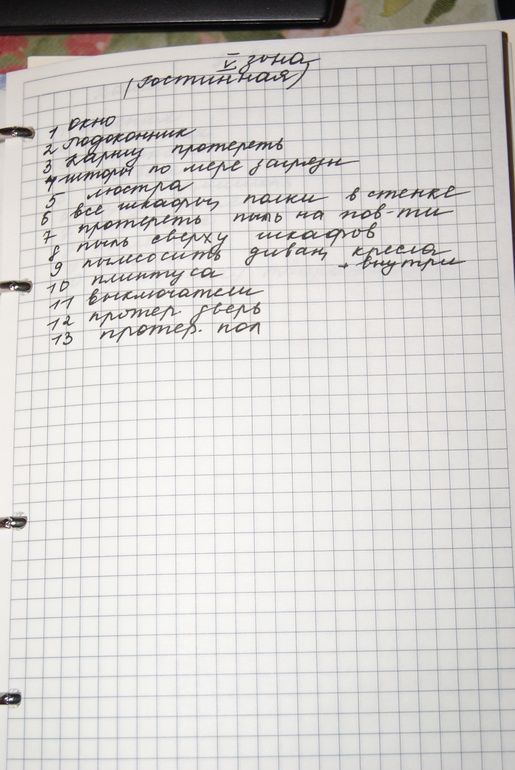 V зона
(гостинная)
1 окно
2 подоконник
3 карниз протереть
4 шторы по мере загрязн
5 люстра
6 все шкафы, полки в стенке
7 протереть пыль на пов-ти
8 пыль сверху шкафов
9 пылесосить диван, кресла
+ внутри
10 плинтуса
11 выключатели
12 протер. дверь
13 протер. пол